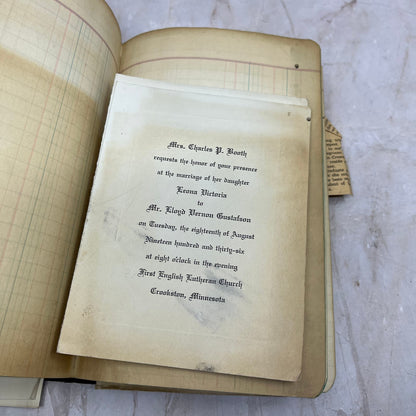 Mrs. Charles P. Booth
requests the honor of your presence
at the marriage of her daughter
Leona Victoria
to
Mr. Lloyd Vernon Gustafson
on Tuesday, the eighteenth of August
Nineteen hundred and thirty-six
at eight o'clock in the evening
First English Lutheran Church
Crookston, Minnesota